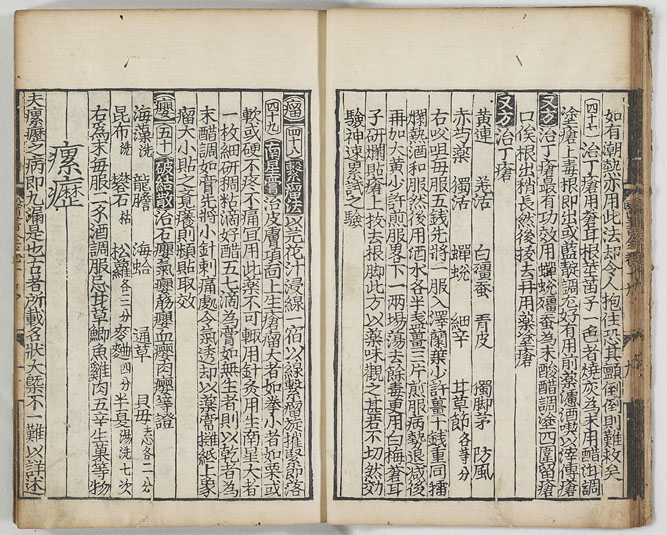 如有潮熱亦用此法却令人抱住恐其顫倒倒則難救矣
四十七 治丁瘡用蒼耳根莖苗子一色者燒灰為末用醋泔調
塗瘡上毒根即出或藍
又方 治丁瘡最有功效用蟬蛻殭蚕為末酸醋調塗四圍留瘡
口俟根出稍長然後拔去再用藥塗瘡
又方 治丁瘡
黃連 羌活 白殭蚕 青皮 獨脚茅 防風
赤芍藥 獨活 蟬蛻 細辛 甘草節各等分
右㕮咀每服五錢先將一服入澤蘭葉少許薑十錢重同擂
爛熱酒和服然後用酒水各半盞薑三片煎服病勢退減後
再加大黃少許煎服畧下一兩塲蕩去餘毒更用白梅蒼耳
子研爛貼瘡上拔去根脚此方以藥味觀之甚若不切然効
驗神速累試之驗
瘤 四十八 繫瘤法 以芫花汁浸線一宿以線繫瘤旋旋緊即落
四十九 南星膏 治皮膚項面上生瘡瘤大者如拳小者如栗或
軟或硬不疼不痛宜用此藥不可輒用針灸用生南星大者
一枚細研稠粘滴好醋五七滴為膏如無生者則以乾者為
末醋調如膏先將小針刺痛處令氣透却以藥膏攤紙上象
瘤大小貼之覺癢則頻貼取效
癭 五十 破結散 治石癭氣癭筋癭血癭肉癭等證
海藻洗 龍膽 海蛤 通草 貝母去心各二分
昆布洗 礬石枯 松蘿各三分 麥麯四分 半夏湯洗七次
右為末每服一錢酒調服忌甘草鯽魚雞肉五辛生菓等物
瘰癧
夫瘰癧之病即九漏是也古者所載名狀大槩不一難以詳述